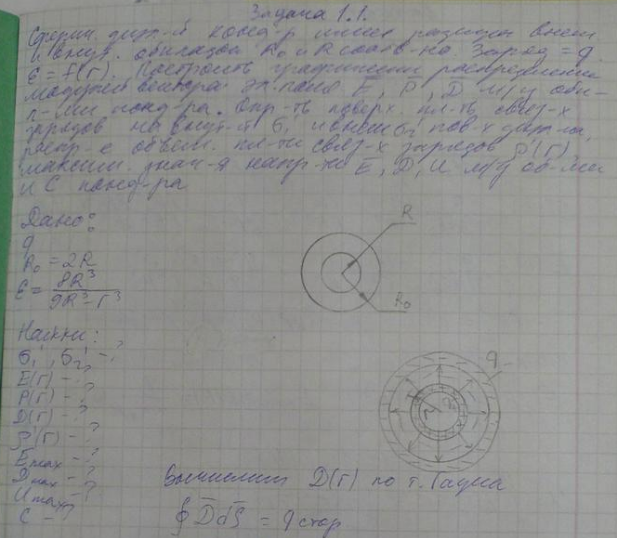 Задача 1.1.
Сферич. диэл-й конд-р имеет радиусы внеш
и внут. обкладок R₀ и R соотв-но. Заряд = q
ε = f(r). Построить графически распределение
модулей вектора эл. поля E, P, D м/у обк-
л-ми конд-ра. Опр-ть поверх. пл-ть связ-х
зарядов на внут-й σ₁ и внеш σ₂ пов-х диэл-ка,
распр-е объем. пл-ти связ-х зарядов ρ'(r)
максим. знач-я напр-ти E, D, U м/у об-ми
и C конд-ра
Дано:
q
R₀ = 2R
ε = 8R³ / 9R³ - r³
Найти:
σ₁', σ₂' - ?
E(r) - ?
P(r) - ?
D(r) - ?
ρ'(r) - ?
Emax - ?
Dmax - ?
Umax - ?
C - ?
R
R₀
q
r
Вычислим D(r) по т. Гаусса
∮ D̄ dS̄ = q стор